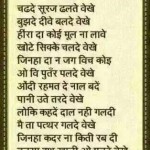 चढदे सूरज ढलते वेखे
बुझदे दीवे बलदे वेखे
हीरा दा कोई मूल ना लावे
खोटे सिक्के चलदे वेखे
जिनहा दा न जग विच कोई
ओ वि पुतॅर पलदे वेखे
ओंदी रहमत दे नाल बदें
पानी उते तरदे वेखे
लोकि कहदें दाल नही गलदी
मै ता पत्थर गलदे वेखे
जिनहा कदर ना किती रब दी